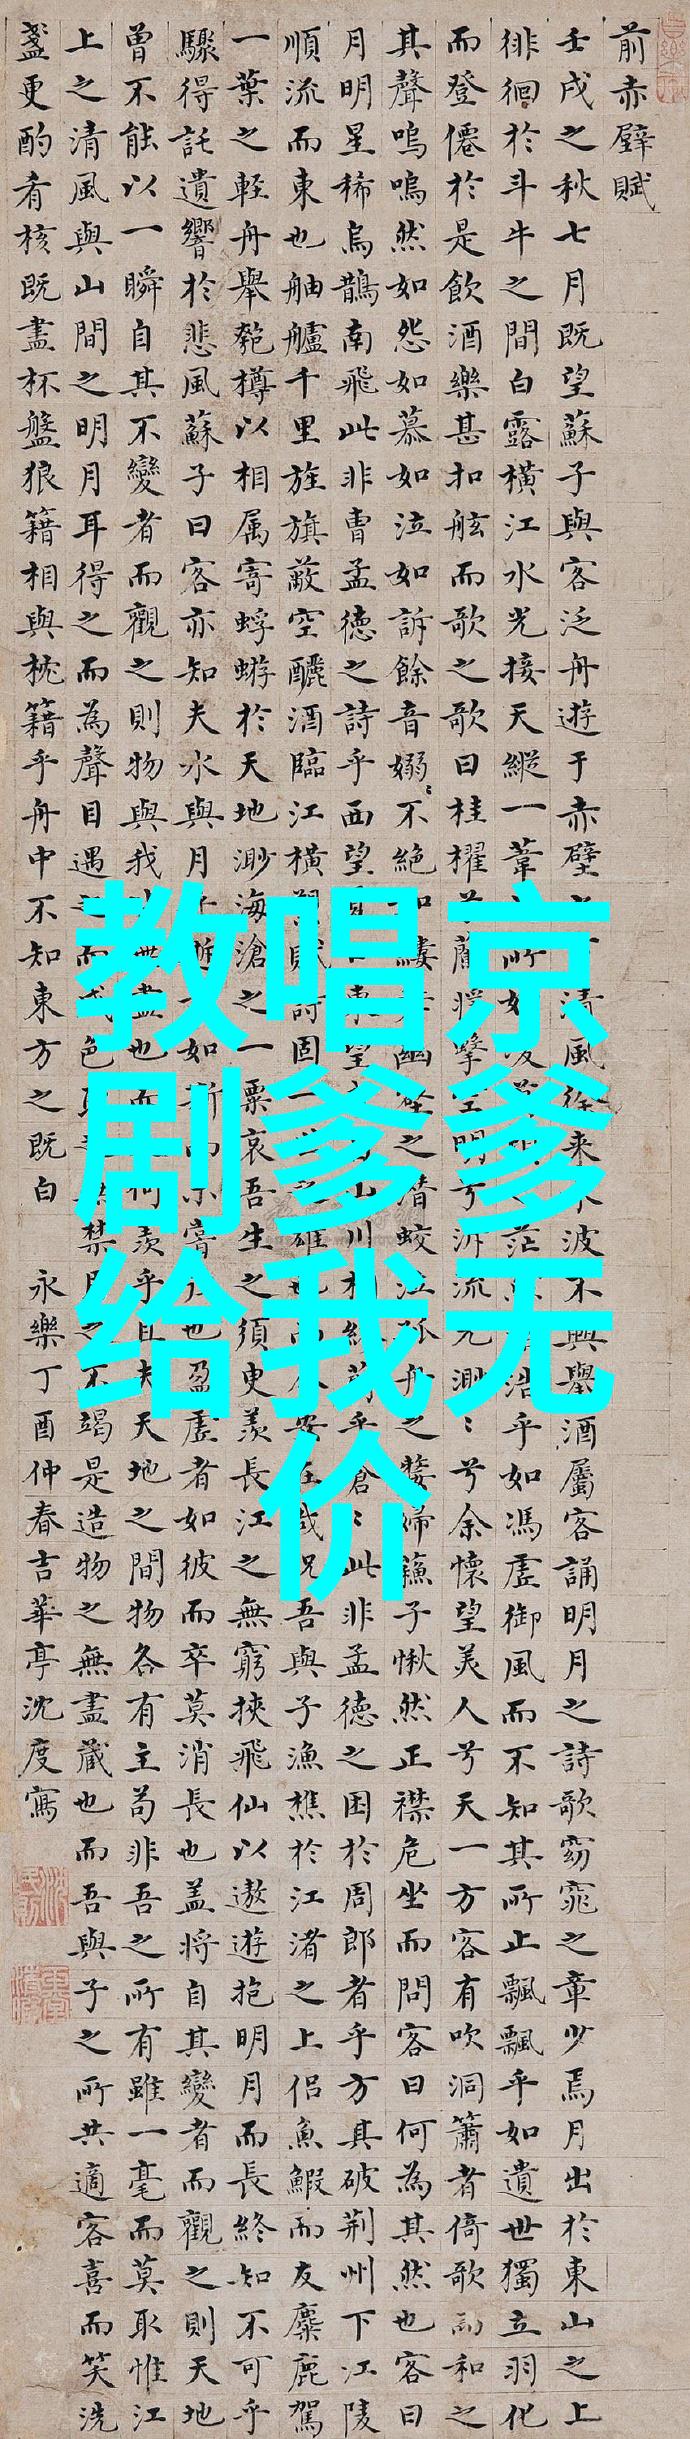 前赤壁賦
壬戌之秋七月既望蘇子與客泛舟遊于赤壁清風徐来水波不興舉酒屬客誦明月之詩歌窈窕之章少焉月出於東山之上
徘徊於斗牛之間白露橫江水光接天縱一葦所如茫浩乎如馮虛御風而不知其所止飄飄乎如遺世獨立羽化
而登僊於是飲酒樂甚扣舷而歌之歌曰桂櫂兮蘭槳擊空明兮泝流光渺〻兮余懷望美人兮天一方客有吹洞簫者倚歌而和之
其聲嗚嗚然如怨如慕如泣如訴餘音嫋〻不絕如縷幽壑之潛蛟泣孤舟之嫠婦蘇子愀然正襟危坐而問客曰何為其然也客曰
月明星稀烏鵲南飛此非曹孟德之詩乎西望東望山川相繆乎蒼〻此非孟德之困於周郎者乎方其破荊州下江陵
順流而東也舳艫千里旌旗蔽空釃酒臨江橫槊賦詩固一雄也安在哉况吾與子漁樵於江渚之上侣魚鰕而友麋鹿駕
一葉之輕舟舉匏樽以相属寄蜉蝣於天地渺海滄之一粟哀吾生之須臾羨長江之無窮挾飛仙以遨遊抱明月而長終知不可乎
驟得託遺響於悲風蘇子曰客亦知夫水與月乎逝如斯而未嘗往也盈虛者如彼而卒莫消長也盖將自其變者而觀之則天地
曾不能以一瞬自其不變者而觀之則物與我無盡也而何羨乎且夫天地之間物各有主苟非吾之所有雖一毫而莫取惟江
上之清風與山間之明月耳得之而為聲目遇之而成色取禁用之不竭是造物之無盡藏也而吾與子之所共適客喜而笑洗
盞更酌肴核既盡杯盤狼籍相與枕籍乎舟中不知東方之既白 永樂丁酉仲春吉華亭沈度寫
教唱京
剧爹爹
给我无
价